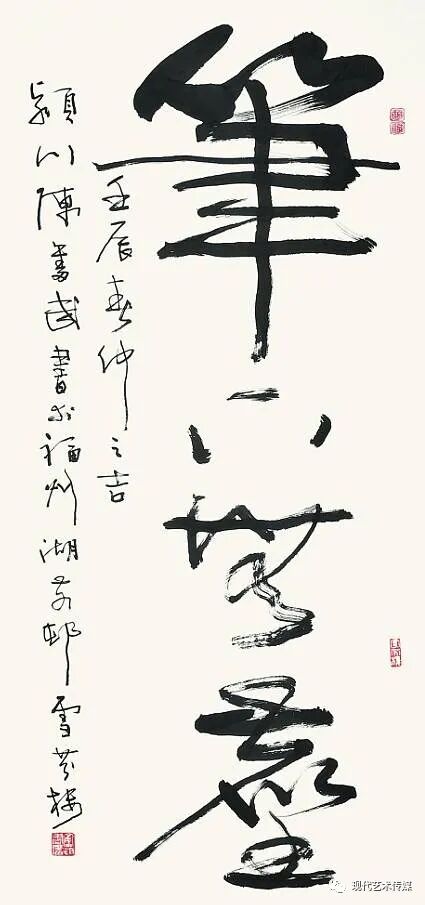 筆下無塵
壬辰春仲之吉
潁川陳奮武書於福州湖前邨雪芬樓
现代艺术传媒